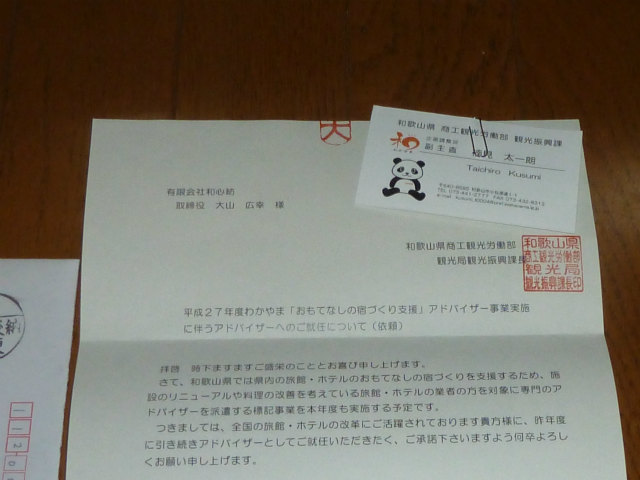 大
和歌山県 商工観光労働部 観光振興課
和
副主査 楠見 太一朗
Taichiro Kusumi
有限会社和心紡
取締役 大山 広幸 様
和歌山県商工観光労働部
観光局観光振興課長
和歌山県
商工観光労働部
観光局
観光振興課長印
平成27年度わかやま「おもてなしの宿づくり支援」アドバイザー事業実施
に伴うアドバイザーへのご就任について(依頼)
拝啓 時下ますますご盛栄のこととお喜び申し上げます。
さて、和歌山県では県内の旅館・ホテルのおもてなしの宿づくりを支援するため、施
設のリニューアルや料理の改善を考えている旅館・ホテルの業者の方を対象に専門のア
ドバイザーを派遣する標記事業を本年度も実施する予定です。
つきましては、全国の旅館・ホテルの改革にご活躍されております貴方様に、昨年度
に引き続きアドバイザーとしてご就任いただきたく、ご承諾下さいますよう何卒よろし
くお願い申し上げます。
112